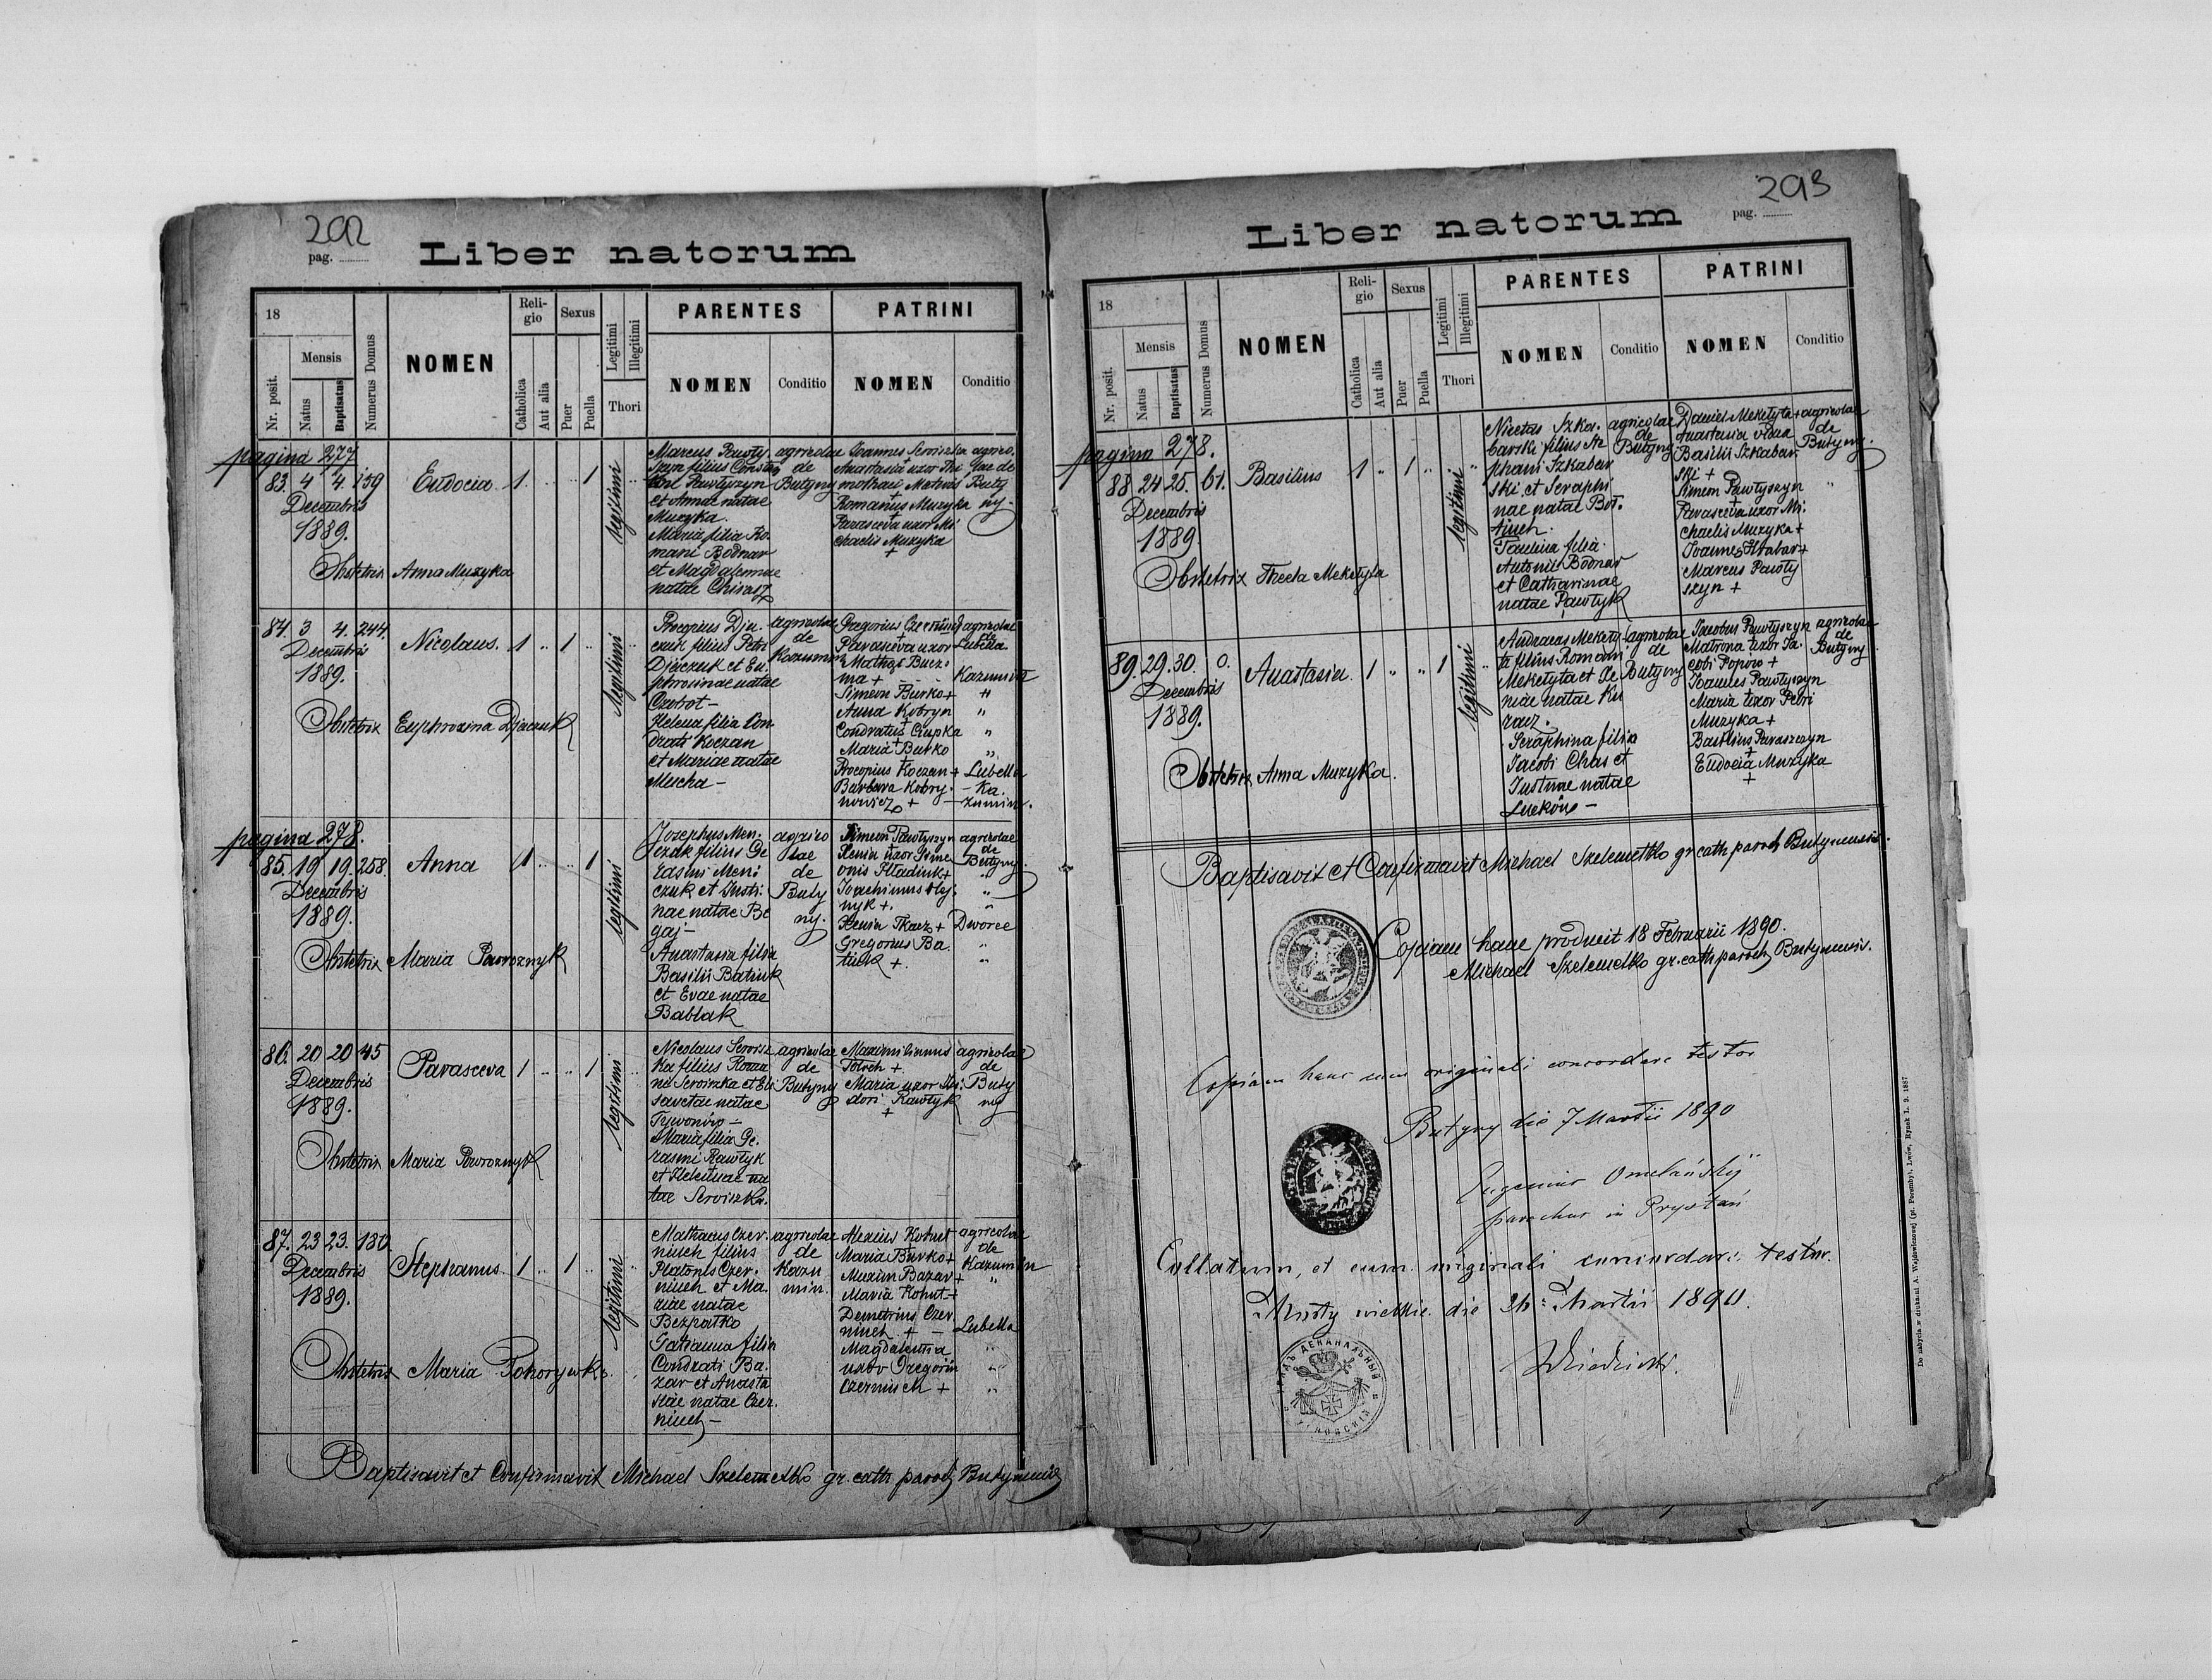 292
pag.
Liber natorum
18
Mensis
Nr. posit.
Natus
Baptisatus
Numerus Domus
NOMEN
Reli-
gio
Catholica
Aut alia
Sexus
Puer
Puella
Legitimi
Illegitimi
Thori
PARENTES
NOMEN
Conditio
PATRINI
NOMEN
Conditio
pagina 277
83. 4 4. 159
Decembris
1889.
Eudocia 1 .. .. 1
legitimi
Obstetrix Anna Muzyka
Marcus Pawły-
szyn filius Constan
tini Pawłyszyn
et Annae natae
Muzyka.
Maria filia Ro-
mani Bodnar
et Magdalennae
natae Chirasz
agricolae
de
Butyny
Joannes Seroiszka
Anastasia uxor
Romanus Muzyka
Parasceva uxor Mi
chaelis Muzyka
+
agrico.
lae de
Buty
ny.
84. 3 4. 244.
Decembris
1889.
Nicolaus. 1 .. 1 ..
legitimi
Obstetrix Euphrosina Djaczuk
Procopius Dja-
czuk filius Petri
Djaczuk et Eu-
phrosinae natae
Czobot -
Helena filia Con
drati Koczan
et Mariae natae
Mucha -
agricolae
de
Kazumin
Gregorius
Parasceva uxor
ma +
Simeon Burko +
Anna Kobryn
Condratus Czupka
+
Maria Butko
Procopius Koczan +
Barbara Kobry-
nowicz +
agricolae
de
Lubella
Kazumin
"
"
"
"
Lubella
- Ka.
- zumin.
pagina 278.
85. 19 19. 258.
Decembris
1889.
Anna 1 .. .. 1
legitimi
Obstetrix Maria Poworoznyk
Josephus Men-
czak filius Ge
rasmi Men:
czuk et Justi-
nae natae Be
gaj -
Anastasia filia
Basilii Batiuk
et Evae natae
Bablak
agrico
lae
de
Buty
ny.
Simeon Pawłyszyn
Xenia uxor Sime
onis Hladiuk +
Joachimus Olej
nyk +.
Xenia Tkacz +
Gregorius Ba.
tiuk +.
agricolae
de
Butyny.
"
"
Dworce
"
"
86. 20 20 45
Decembris
1889.
Parasceva 1 .. .. 1
legitimi
Obstetrix Maria Poworoznyk
Nicolaus Seroisz
ka filius Roma
ni Seroiszka et Eli
savetae natae
Tywonów -
Maria filia Ge-
rasmi Pawłyk
et Helennae na
tae Seroiszka.
agricolae
de
Butyny
Maximilianus
+
Maria uxor Isi:
dori Pawłyk
+
agricolae
de
Buty
ny
87. 23 23. 180.
Decembris
1889.
Stephanus. 1 .. 1 ..
legitimi
Obstetrix Maria Tokorywka.
Mathaeus Czer.
niuch filius
Platonis Czer.
niuch et Ma.
riae natae
Bezpałko
Tatianna filia
Condrati Ba.
zar et Anasta
siae natae Czer.
niuch -
agricolae
de
Kazu
min.
Alexius Kohut
Maria Burko +
Maxim Bazar +
Maria Kohut +
Demetrius Czer
niuch + -
Magdalenna
uxor Gregorii
Czerniuch +
agricolae
de
Kazumin
"
Lubella
"
"
"
Baptisavit et Confirmavit Michael Szelemetko gr cath paroch Butynensis
293
pag.
Liber natorum
18
Mensis
Nr. posit.
Natus
Baptisatus
Numerus Domus
NOMEN
Reli-
gio
Catholica
Aut alia
Sexus
Puer
Puella
Legitimi
Illegitimi
Thori
PARENTES
NOMEN
Conditio
PATRINI
NOMEN
Conditio
pagina 278.
88 24 25. 61.
Decembris
1889
Basilius 1 .. 1 ..
legitimi
Obstetrix Thecla Meketyta
Nicetas Szka-
barski filius Ste
phani Szkabar
ski et Seraphi
nae natae Boł-
tiuch.
Paulina filia
Antonii Bodnar
et Catharinae
natae Pawłyk
agricolae
de
Butyny
Daniel Meketyta +
Anastasia vidua
Basilii Szkabar.
ski +
Simeon Pawłyszyn
+
Parasceva uxor Mi:
chaelis Muzyka +
Joannes Hrabar +
Marcus Pawły
szyn +
agricolae
de
Butyny.
"
89. 29. 30. 0.
Decembris
1889.
Anastasia. 1 .. .. 1
legitimi
Obstetrix Anna Muzyka.
Andraeas Mekety
ta filius Romani
Meketyta et Xe
niae natae Ku
racz.
Seraphina filia
Jacobi Chas et
Justinae natae
Lucków -
agricolae
de
Butyny
Jacobus Pawłyszyn
Matrona uxor Ja.
cobi Popow +
Joannes Pawłyszyn
Maria uxor Petri
Muzyka +
Basilius Paraszczyn
+
Eudocia Muzyka
+
agricolae
de
Butyny
Baptisavit et Confirmavit Michael Szelemetko gr cath paroch Butynensis.
Copiam hanc producit 18 Februarii 1890.
Michael Szelemetko gr. cath paroch Butynensis.
Copiam hanc cum originali concordare testor
Butyny die 7 Martii 1890
Eugenius Omelański
parochus in Prystań
Collatum, et cum originali concordare testor.
Mosty wielkie die 26 Martii 1890.
Do nabycia w drukarni A. Wajdowiczowej (pt. Poremby), Lwów, Rynek L. 9. 1887